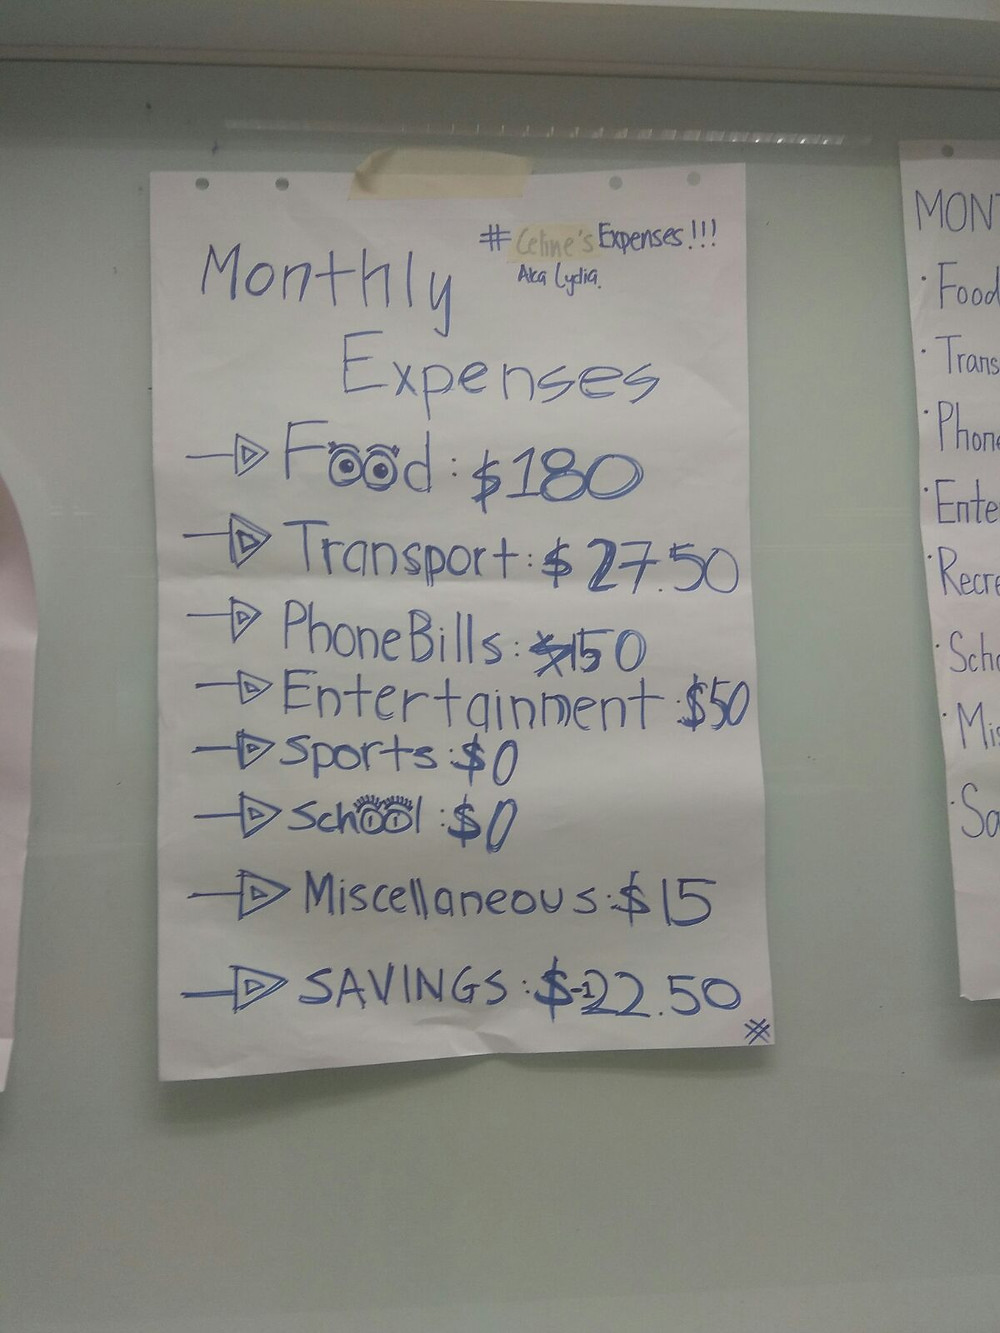 # Celine's Expenses!!!
Aka Lydia.
Monthly
Expenses
Food: $180
Transport: $27.50
Phone Bills: $150
Entertainment: $50
Sports: $0
School: $0
Miscellaneous: $15
SAVINGS: $-122.50
MONT
· Food
· Trans
· Phone
· Ente
· Recre
· Scho
· Mis
· Sa